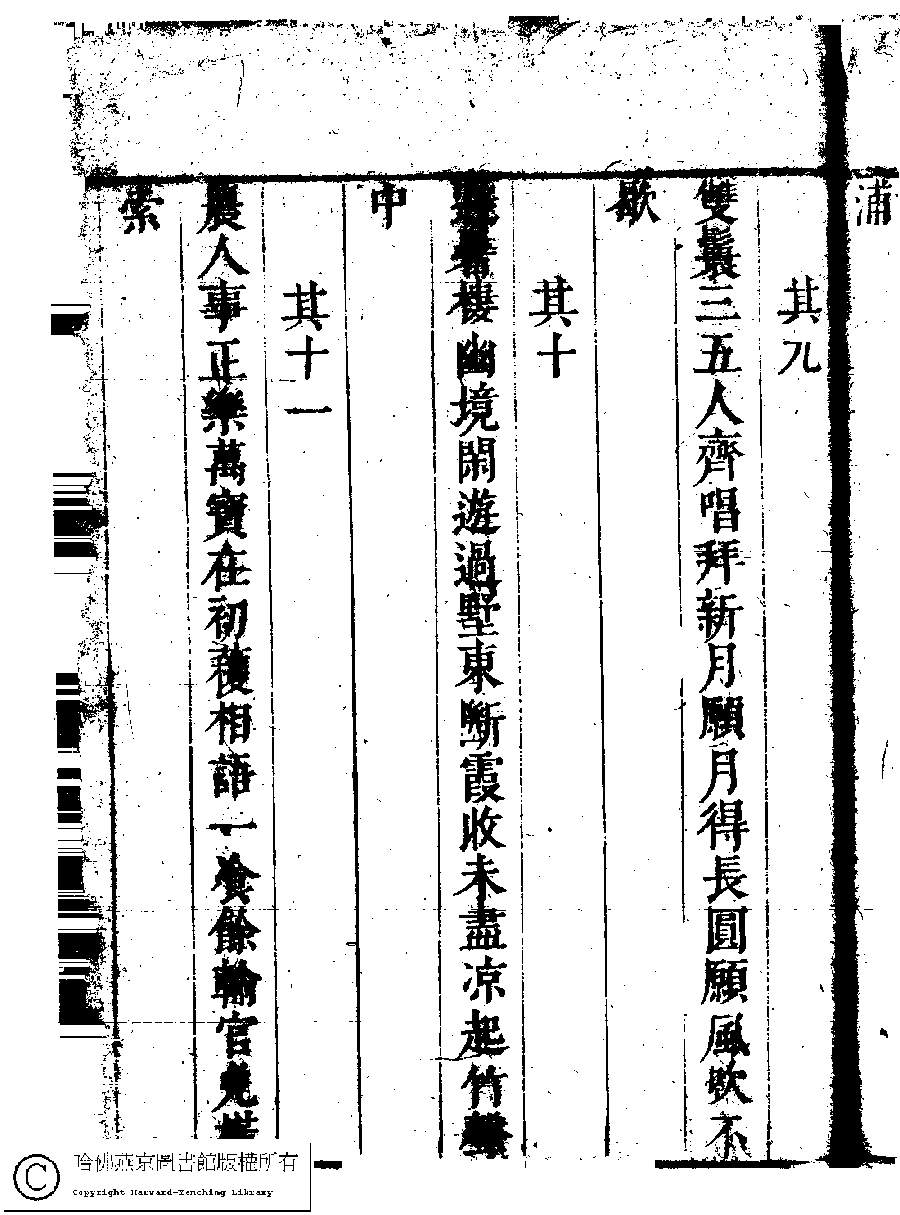 浦
其九
雙鬟三五人齊唱拜新月願月得長圓願風吹不
歇
其十
樓幽境閑遊過墅東斷霞收未盡凉起竹
中
其十一
農人事正樂萬寶在初穫相語一飡餘輸官免
索
哈佛燕京圖書館版權所有
Copyright Harvard-Yenching Library